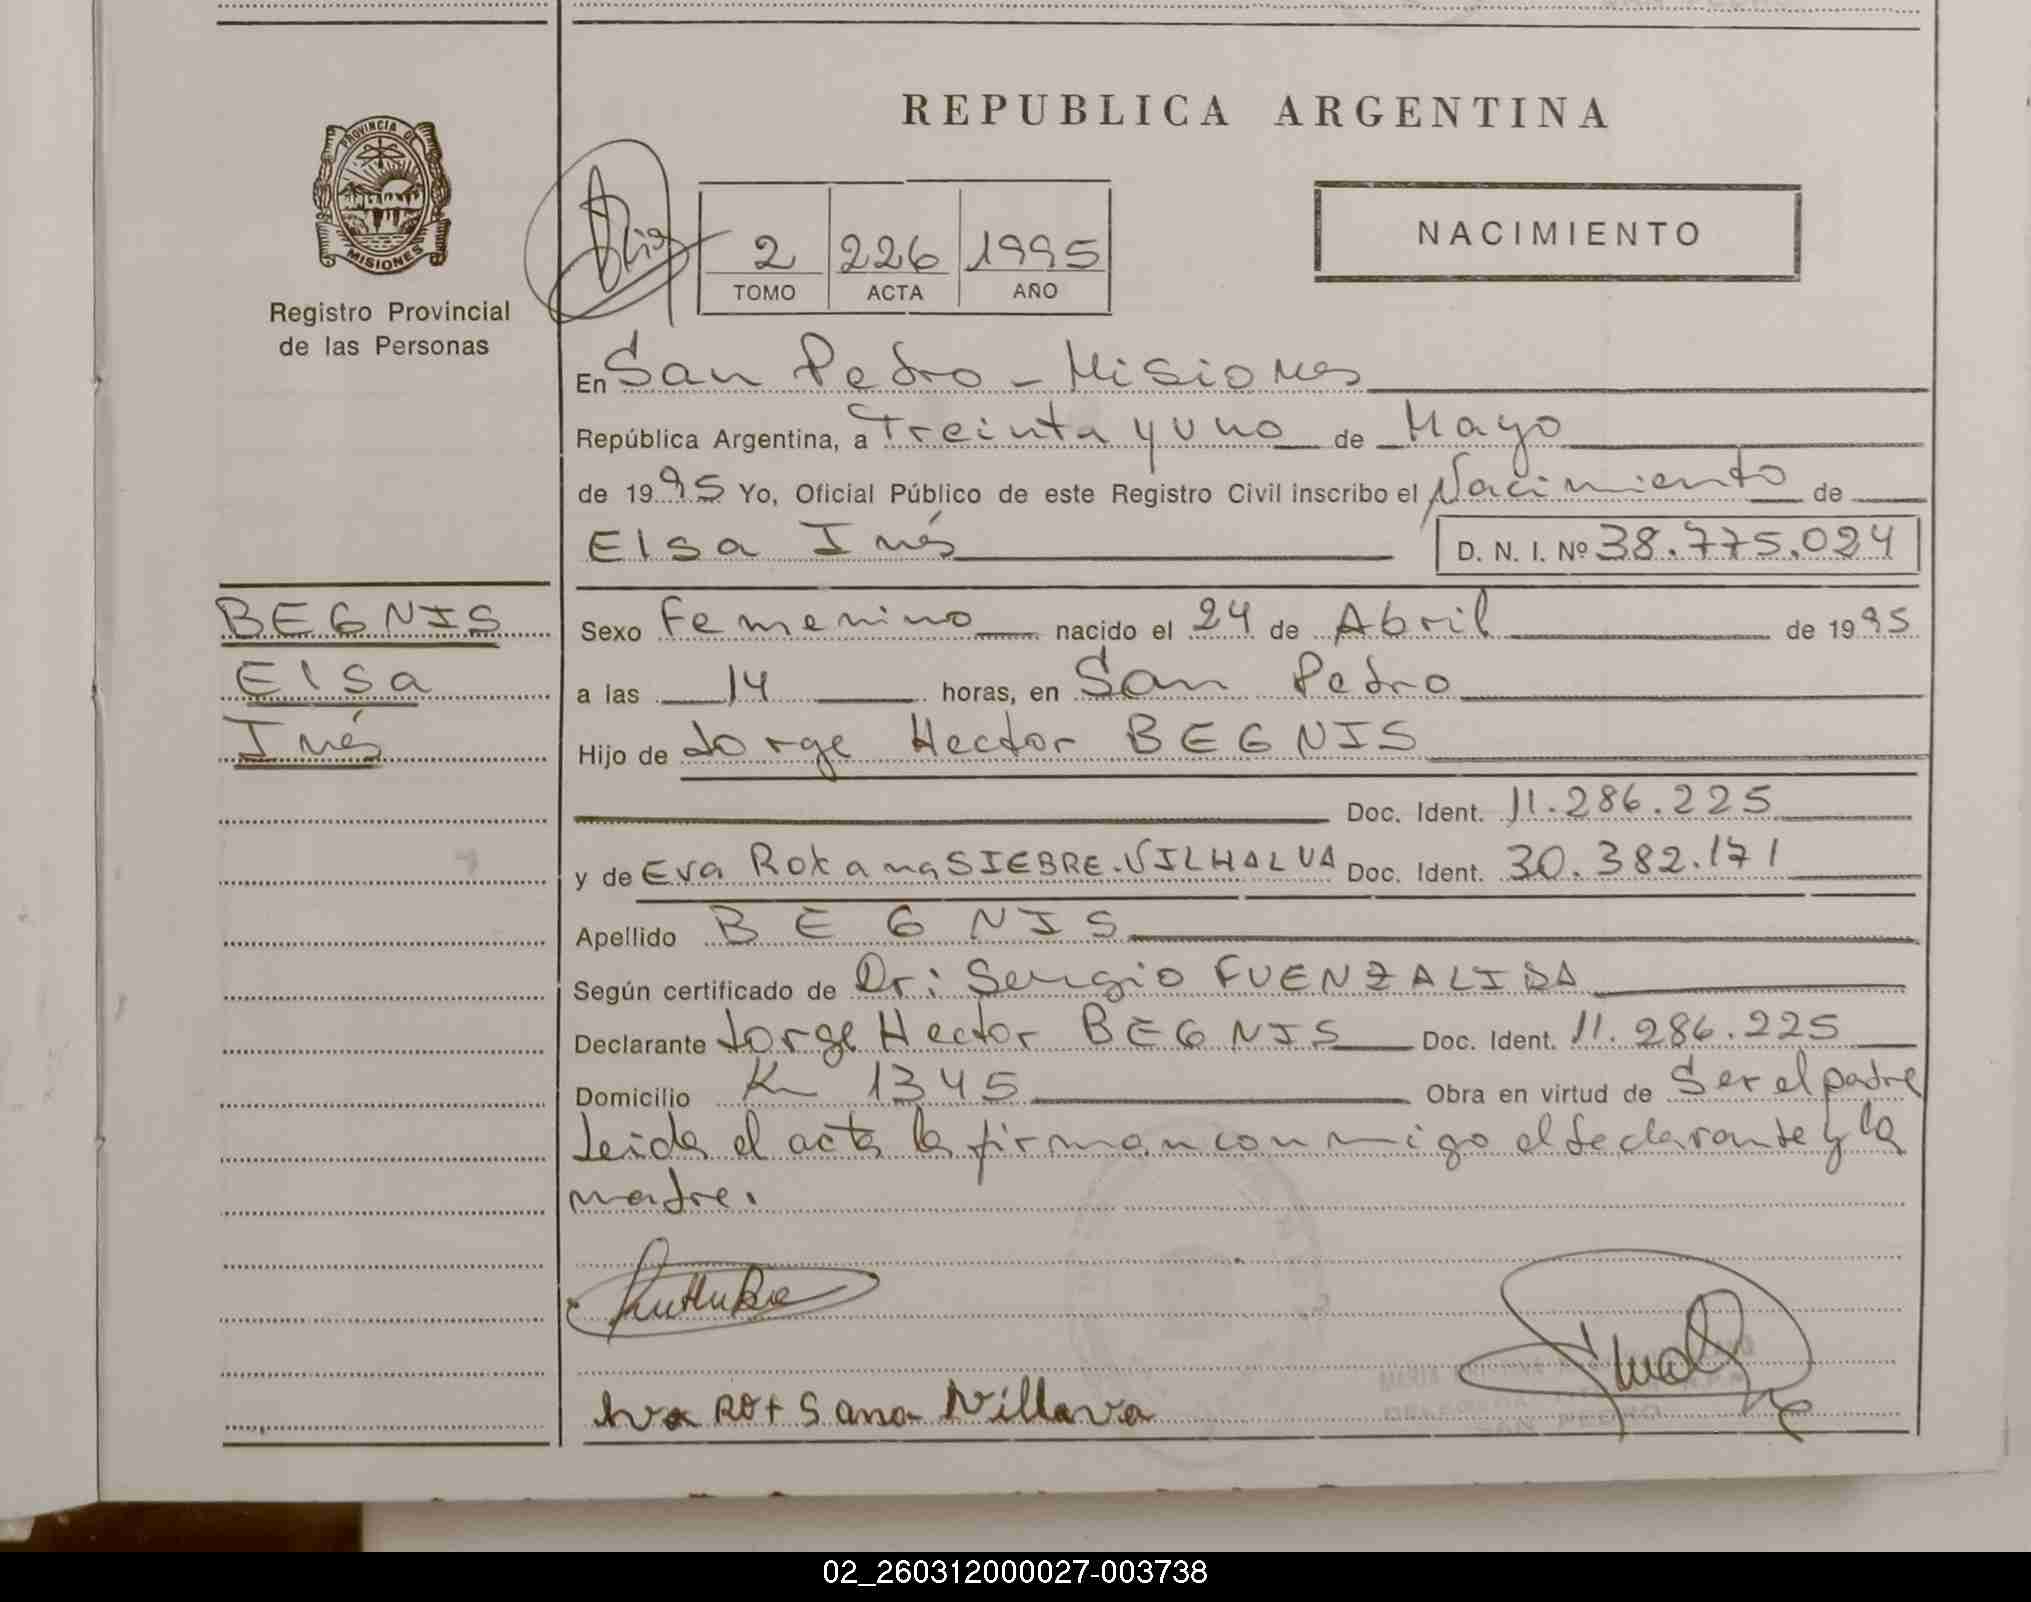 REPUBLICA ARGENTINA
PROVINCIA DE
MISIONES
Registro Provincial
de las Personas
2 226 1995
TOMO ACTA AÑO
NACIMIENTO
En San Pedro - Misiones
República Argentina, a Treinta y uno de Mayo
de 1995 Yo, Oficial Público de este Registro Civil inscribo el Nacimiento de
Elsa Inés D. N. I. Nº 38.775.024
BEGNIS
Elsa
Inés
Sexo Femenino nacido el 24 de Abril de 1995
a las 14 horas, en San Pedro
Hijo de Jorge Hector BEGNIS
Doc. Ident. 11.286.225
y de Eva Roxana SIEBRE.VILHALVA Doc. Ident. 30.382.171
Apellido BEGNIS
Según certificado de Dr: Sergio FUENZALIDA
Declarante Jorge Hector BEGNIS Doc. Ident. 11.286.225
Domicilio Km 1345 Obra en virtud de Ser el padre
Leida el acta la firman conmigo el declarante y la
madre.
SAN PEDRO
02_260312000027-003738